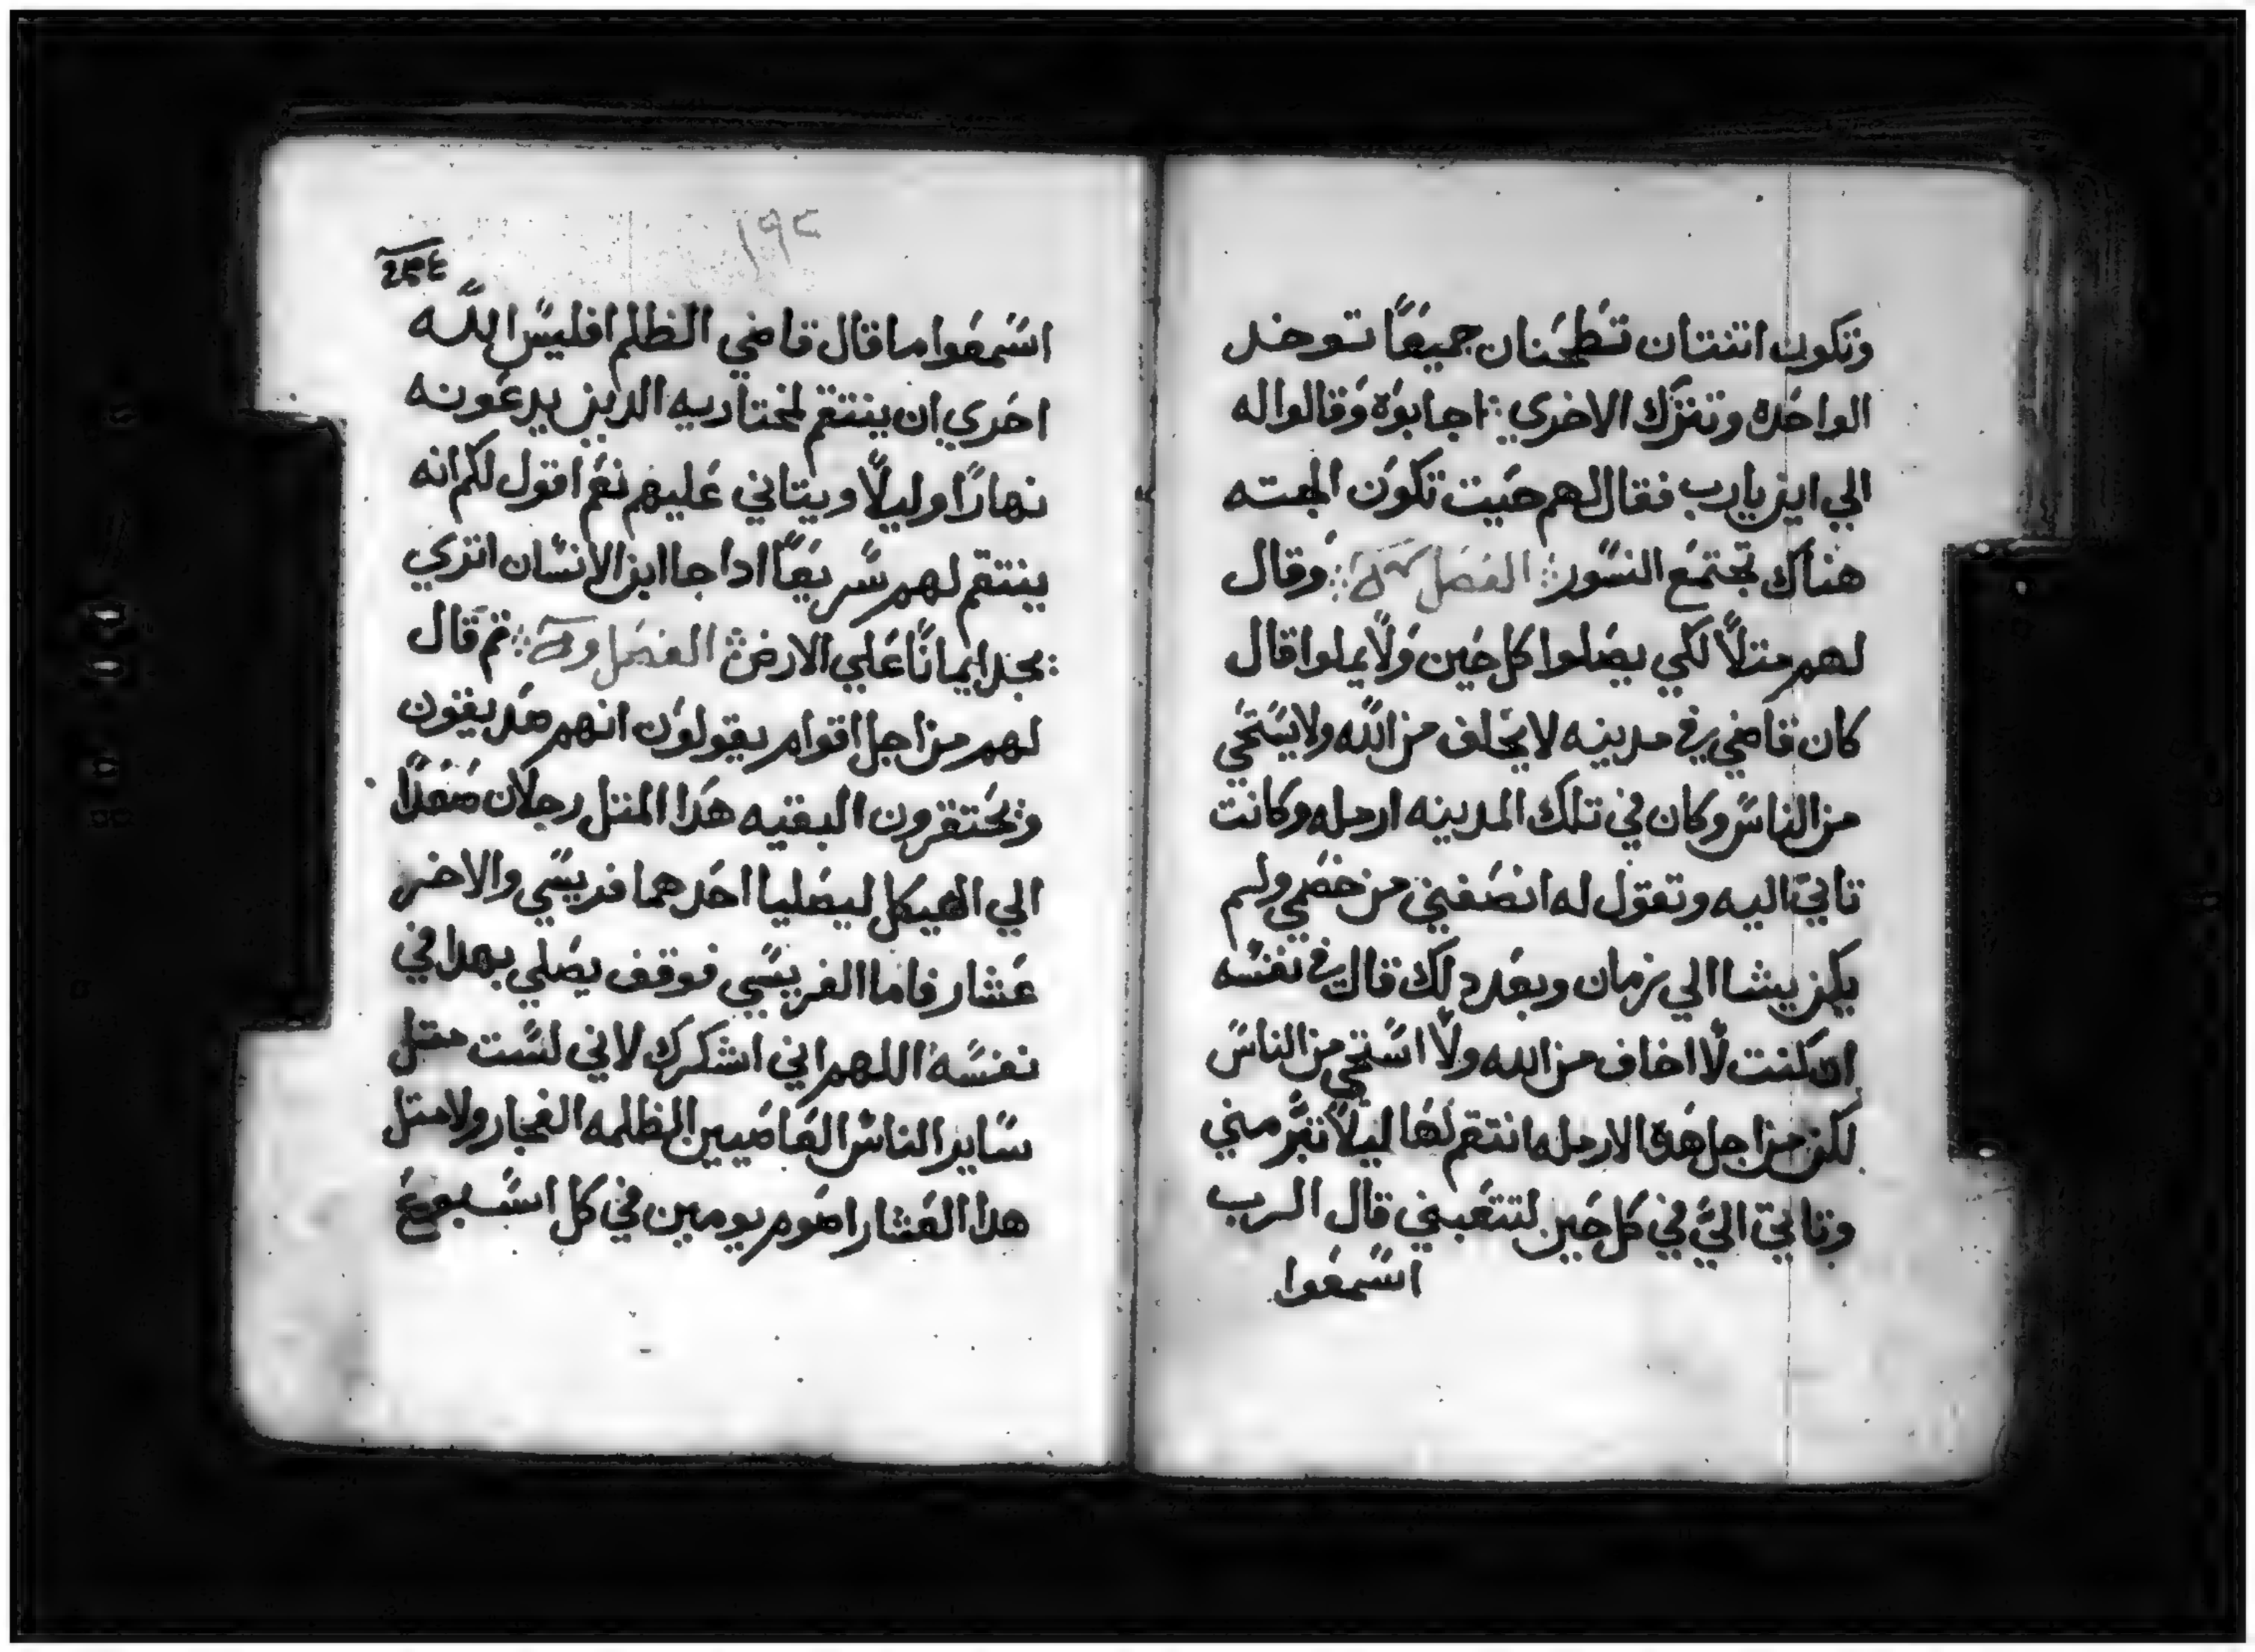 وتكون اتنتان تطحنان جميعًا توخد
الواحده وتترك الاخري ⁘ اجابوه وقالوا له
الي اين يارب فقال لهم حيت تكون الجته
هناك تجتمع النسور ⁘ الفصل ⁘ وقال
لهم متلاً لكي يصلوا كل حين ولا يملوا قال
كان قاضي في مدينه لا يخاف من الله ولا يستحي
من الناس وكان في تلك المدينه ارمله وكانت
تاتي اليه وتقول له انصفني من خصمي ولم
يكن يشا الي زمان وبعد دلك قال في نفسه
ان كنت لا اخاف من الله ولا استحي من الناس
لكن من اجل هده الارمله انتقم لها ليلا تبرمني
وتاتي اليّ في كل حين لتتعبني قال الرب
اسمعوا
١٩٤
اسمعوا ما قال قاضي الظلم افليس الله
احري ان ينتقم لمختاريه الدين يدعونه
نهارًا وليلاً ويتاني عليهم نعم اقول لكم انه
ينتقم لهم سريعًا ادا جا ابن الانسان اتري
يجد ايمانًا علي الارض ⁘ الفصل ⁘ تم قال
لهم من اجل اقوام يقولون انهم صديقون
ويحتقرون البقيه هدا المتل رجلان صعدا
الي الهيكل ليصليا احدهما فريسي والاخر
عشار فاما الفريسي فوقف يصلي بهدا في
نفسه اللهم اني اشكرك لاني لست متل
ساير الناس العاصيين الظلمه الفجار ولا متل
هدا العشار اصوم يومين في كل اسبوع